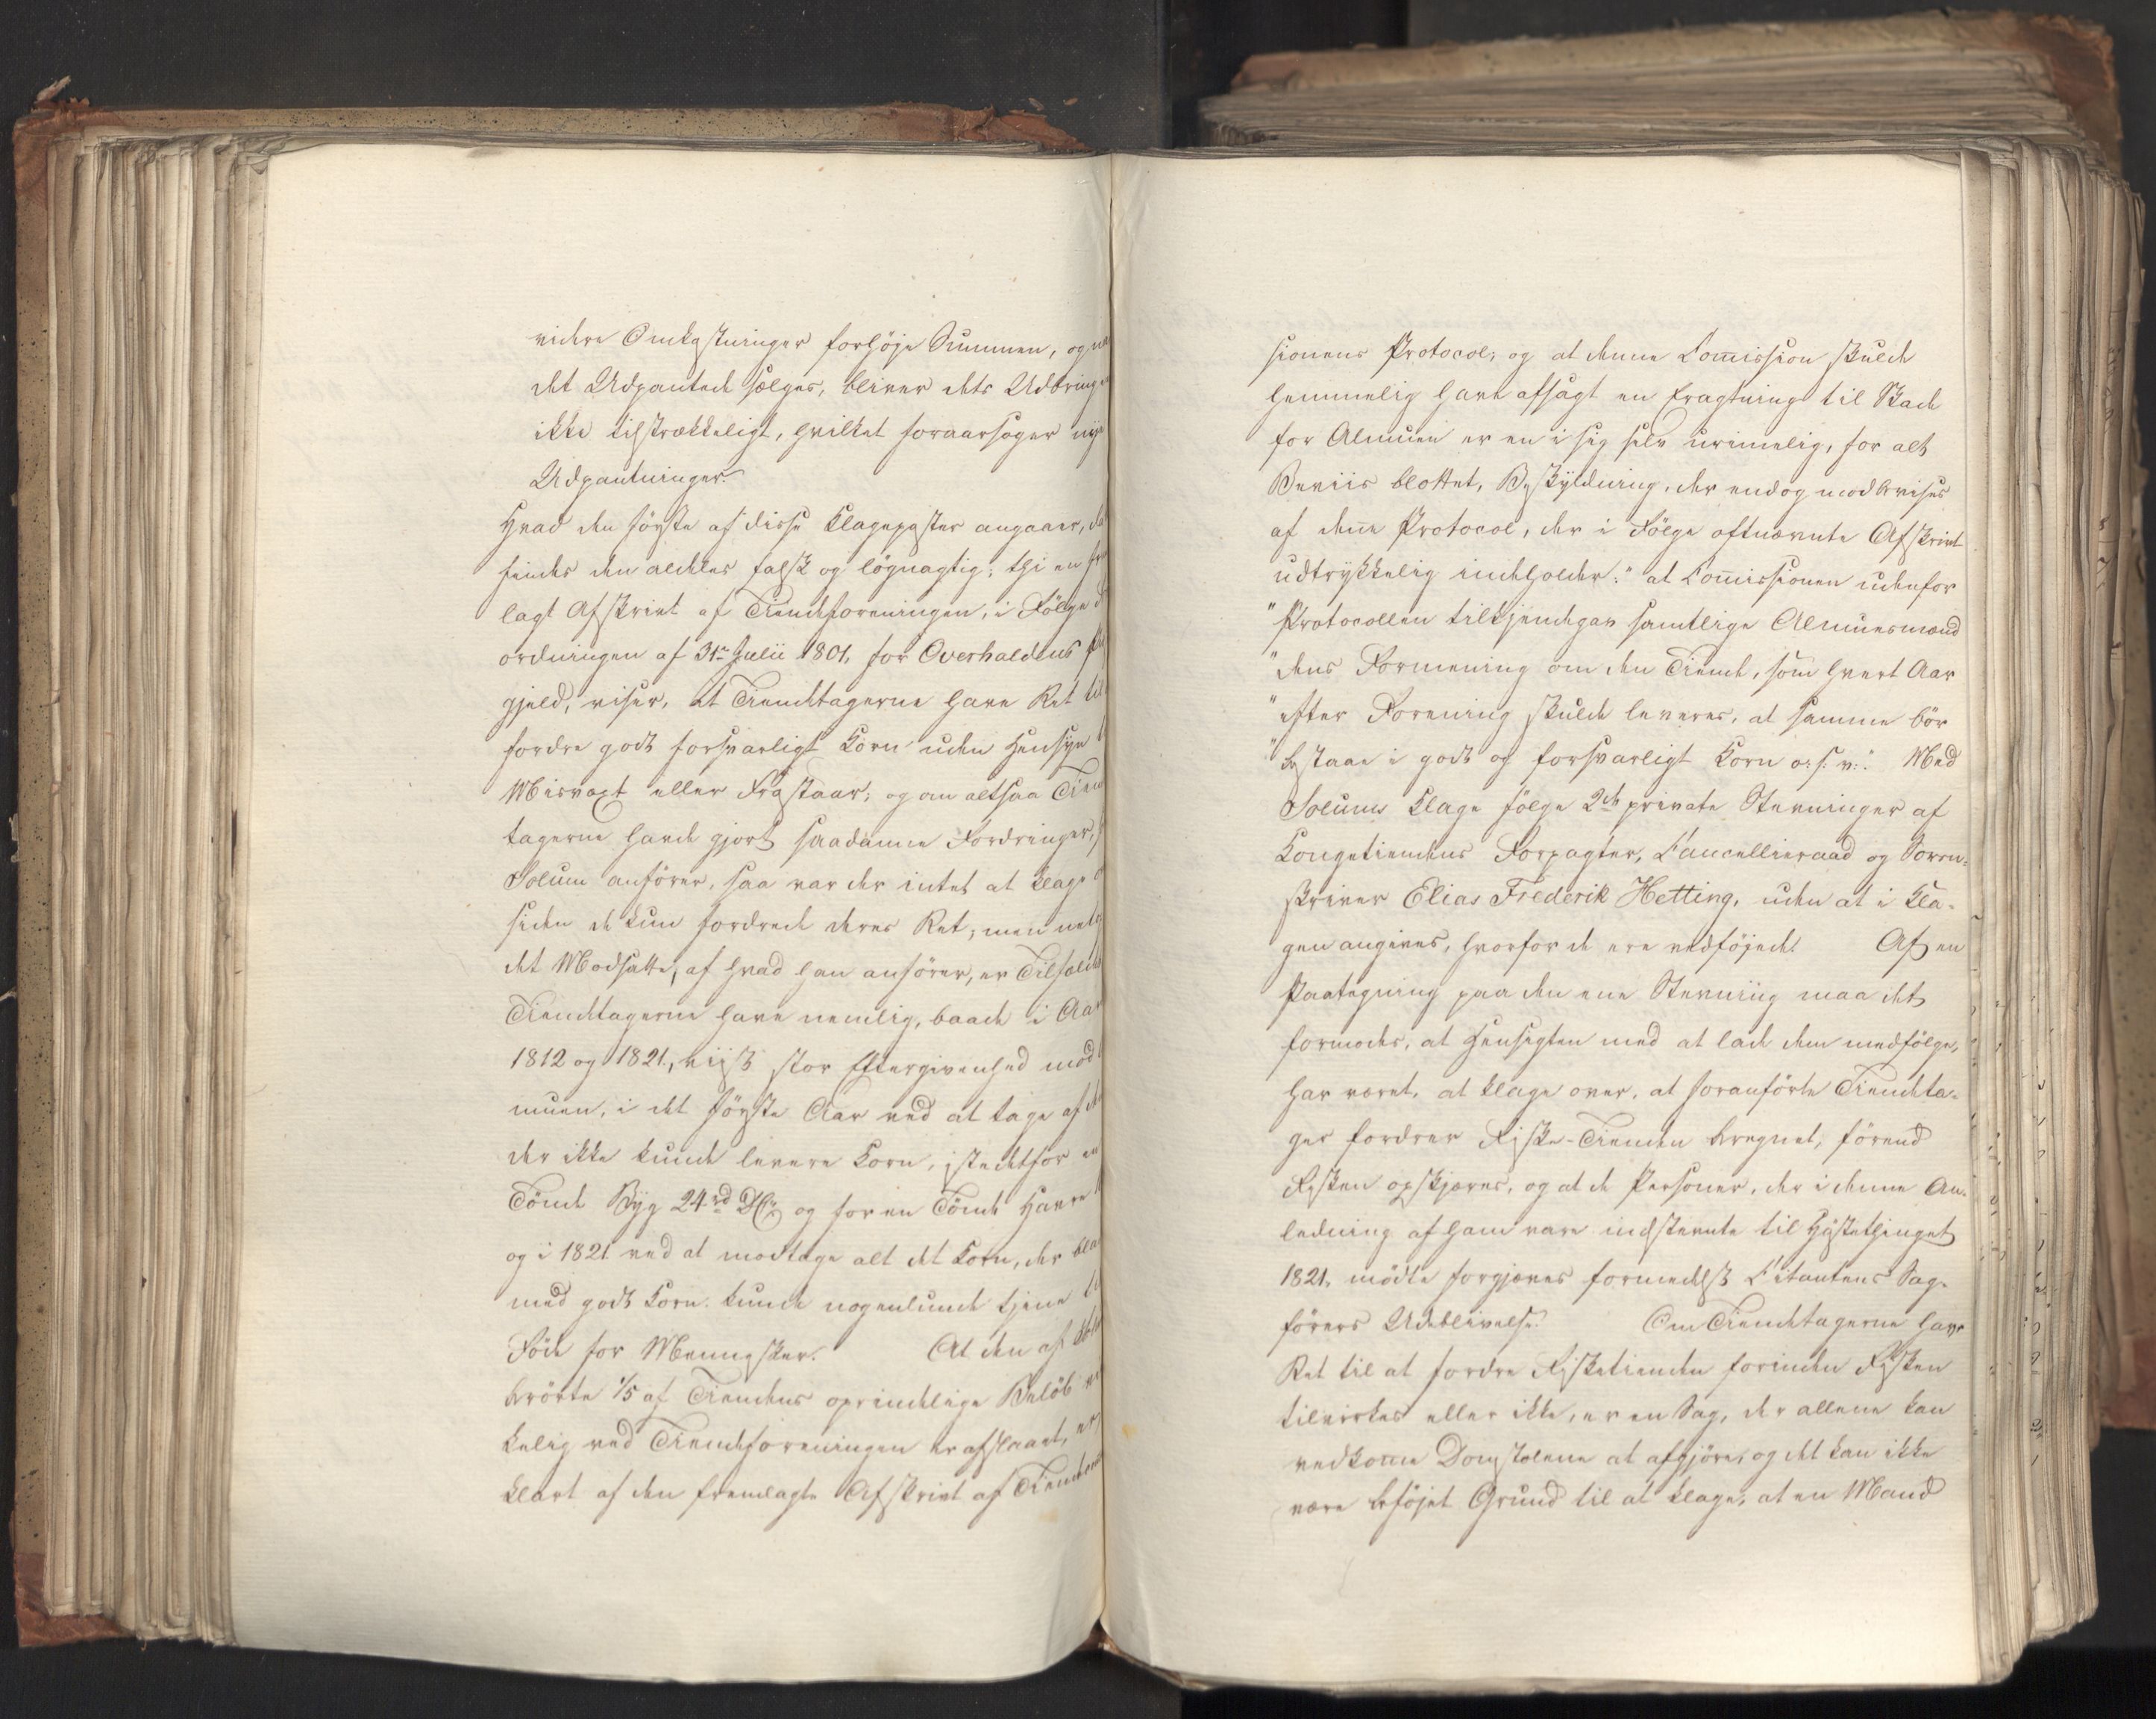 videre Omkostninger forhöje Summen, og naar
det Udpantede sælges, bliver dets Udbringe
ikke tilstrækkeligt, hvilket foraarsager nye
Udpantninger.
Hvad den förste af disse Klageposter angaaer, da
findes den aldeles falsk og lögnagtig; thi en frem
lagt Afskrivt af Tiendeforeningen, i Fölge
ordningen af 31te Julii 1801, for Overhaldens
gjeld, viser, at Tiendetagerne have Ret til
fordre godt forsvarligt Korn uden Hensyn
Misvaxt eller Frostaar; og om altsaa Tien
tagerne havde gjort saadanne Fordringer,
Solum anförer, saa var der intet at klage
siden de kun fordrede deres Ret; men net
det Modsatte, af hvad han anförer, er Tilfældet
Tiendetagerne have nemlig, baade i Aar
1812 og 1821, viist stor Eftergivenhed mod
muen, i det förste Aar ved at tage af de
der ikke kunde levere Korn, istedetfor en
Tönde Byg 24 rd og for en Tönde Havre
og i 1821 ved at modtage alt det Korn, der bla
med godt Korn kunde nogenlunde tjene til
Föde for Mennesker. At den af
berörte 1/5 af Tiendens oprindelige Belöb
kelig ved Tiendeforeningen er afslaaet, er
klart af den fremlagte Afskrivt af Tiende
sionens Protocol; og at denne Commission skulde
hemmelig have afsagt en Eragtning til Skade
for Almuen er en i sig selv urimelig, for alt
Beviis blottet, Beskyldning, der endog modbevises
af denne Protocol, der i Fölge oftnævnte Afskrivt
udtrykkelig indeholder: "at Commissionen udenfor
"Protocollen tilkjendegav samtlige Almuesmænd
"dens Formening om den Tiende, som hvert Aar
"efter Forening skulde leveres, at samme bör
"bestaae i godt og forsvarligt Korn o: s: v:". Med
Solums Klage fölge 2de private Stevninger af
Kongetiendens Forpagter, Cancellieraad og Soren-
skriver Elias Frederik Hetting, uden at i Kla-
gen angives, hvorfor de ere vedföjede. Af en
Paategning paa den ene Stevning maa det
formodes, at Hensigten med at lade dem medfölge,
har været, at klage over, at foranförte Tiendeta-
ger fordrer Fiske-Tienden beregnet, förend
Fisken opskjæres, og at de Personer, der i denne An-
ledning af ham vare indstevnte til Höstethinget
1821, mödte forgjæves formedelst Citantens Sag-
förers Udeblivelse. Om Tiendetagerne have
Ret til at fordre Fisketienden forinden Fisken
tilvirkes eller ikke, er en Sag, der allene kan
vedkomme Domstolene at afgjöre, og det kan ikke
være beföjet Grund til at klage, at en Mand